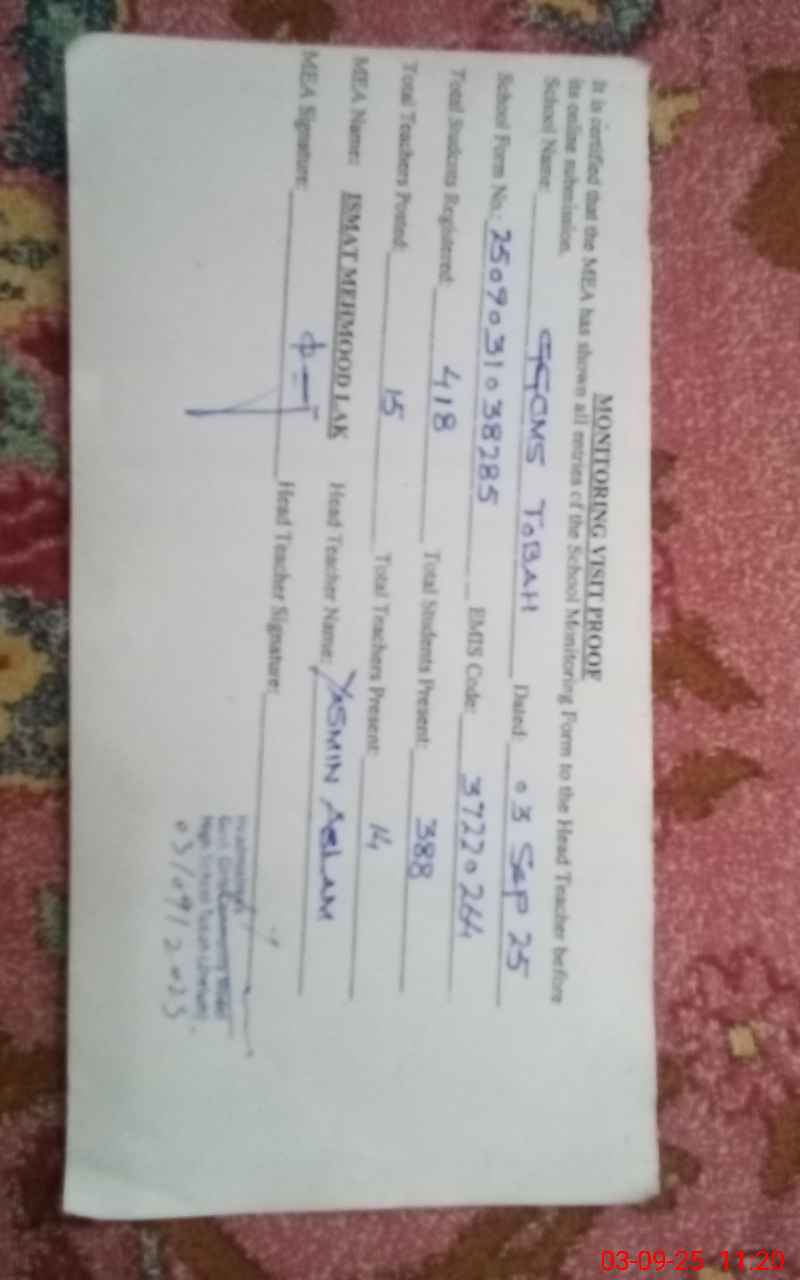 MONITORING VISIT PROOF
It is certified that the MEA has shown all entries of the School Monitoring Form to the Head Teacher before
its online submission.
School Name: GGCMS TOBAH Dated: 03 Sep 25
School Form No: 2509031038285 EMIS Code: 37220264
Total Students Registered: 418 Total Students Present: 388
Total Teachers Posted: 15 Total Teachers Present: 14
MEA Name: ISMAT MEHMOOD LAK Head Teacher Name: YASMIN ASLAM
MEA Signature: Head Teacher Signature:
Headmistress
Govt. Girls Community Model
High School
03-09-25 11:20